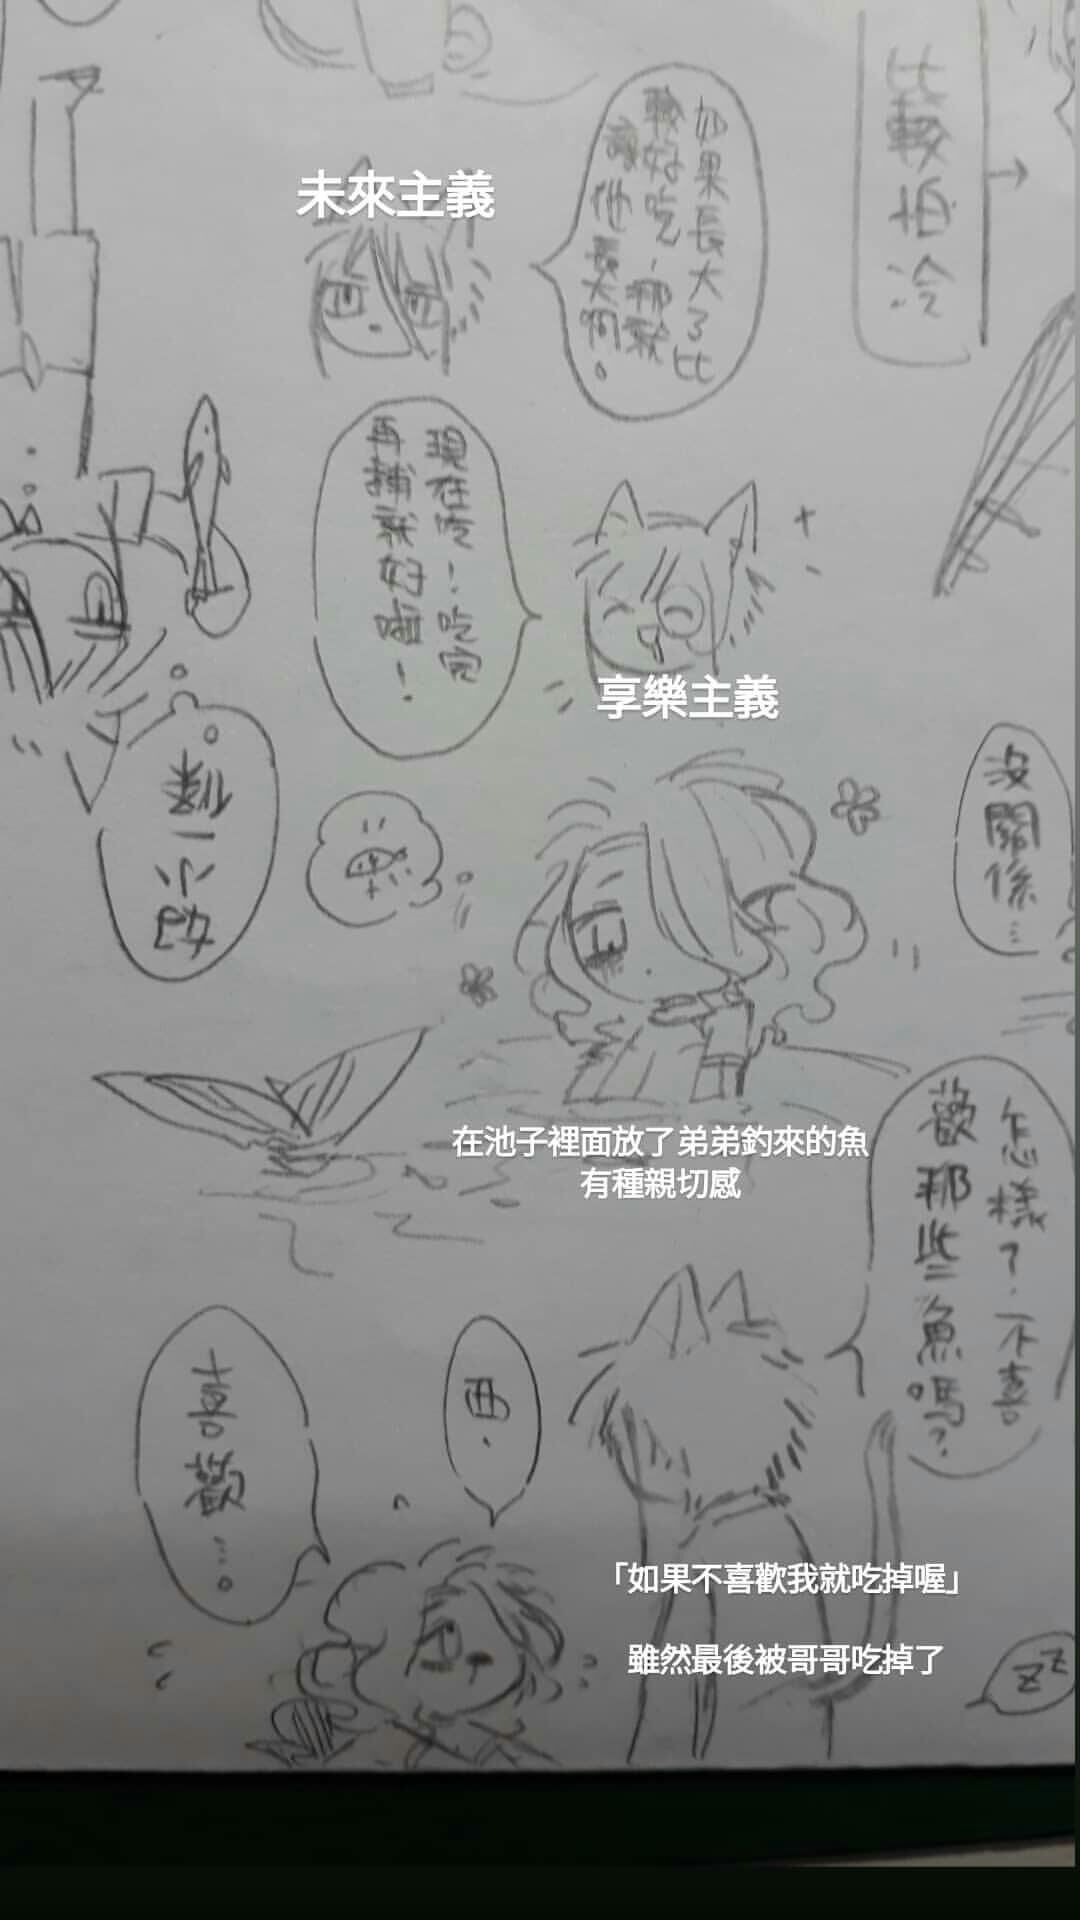 比較怕冷
如果長大了比
較好吃，那就
讓他長大啊。
未來主義
現在吃！吃完
再捕就好啦！
享樂主義
沒關係…
在池子裡面放了弟弟釣來的魚
有種親切感
怎樣？不喜
歡那些魚嗎？
喜歡…。
「如果不喜歡我就吃掉喔」
雖然最後被哥哥吃掉了
zz